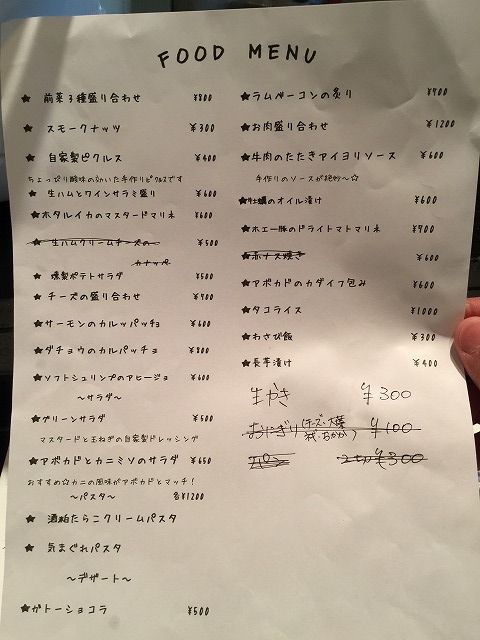 FOOD MENU
★ 前菜3種盛り合わせ ¥800
★ スモークナッツ ¥300
★ 自家製ピクルス ¥400
ちょっぴり酸味の効いた手作りピクルスです
★ 生ハムとワインサラミ盛り ¥600
★ホタルイカのマスタードマリネ ¥600
★ 生ハムクリームチーズの ¥500
カナッペ
★ 燻製ポテトサラダ ¥500
★ チーズの盛り合わせ ¥700
★サーモンのカルッパッチョ ¥600
★ダチョウのカルパッチョ ¥800
★ソフトシュリンプのアヒージョ ¥600
〜サラダ〜
★グリーンサラダ ¥500
マスタードと玉ねぎの自家製ドレッシング
★アボカドとカニミソのサラダ ¥650
おすすめ☆カニの風味がアボカドとマッチ!
〜パスタ〜 各¥1200
★ 酒粕たらこクリームパスタ
★ 気まぐれパスタ
〜デザート〜
★ガトーショコラ ¥500
★ラムベーコンの炙り ¥700
★お肉盛り合わせ ¥1200
★牛肉のたたきアイヨリソース ¥600
手作りのソースが絶妙〜☆
★牡蠣のオイル漬け ¥600
★ホエー豚のドライトマトマリネ ¥700
★赤ナス焼き ¥600
★アボカドのカダイフ包み ¥600
★タコライス ¥1000
★わさび飯 ¥300
★長芋漬け ¥400
生かき ¥300
おにぎり(チーズ・大葉 ¥100
おかか)
2切¥300